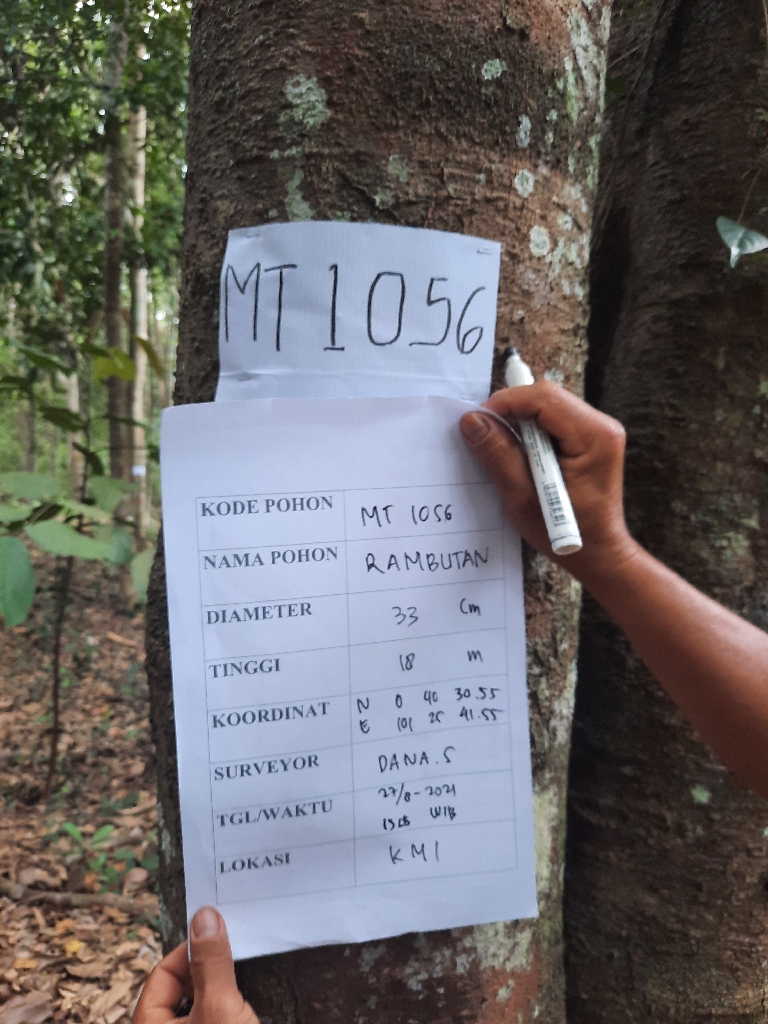 MT 1056
KODE POHON MT 1056
NAMA POHON RAMBUTAN
DIAMETER 33 Cm
TINGGI 18 m
KOORDINAT N 0 40 30.55
E 101 25 41.55
SURVEYOR DANA.S
TGL/WAKTU 27/8-2021
WIB
LOKASI KMI